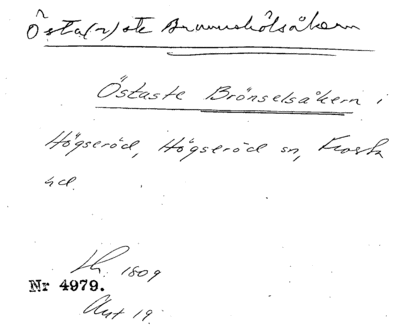 Östa(r)ste Brunnshölsåkern
Östaste Brönselsåkern i
Högseröd, Högseröd sn, Frosta
hd.
Lh. 1809
Nr 4979.
Akt 19.